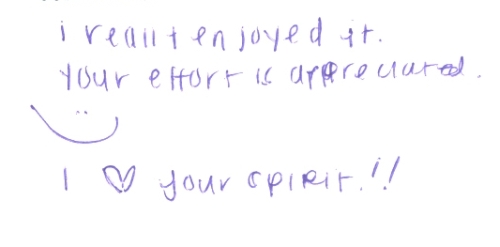 i really enjoyed it.
Your effort is appreciated.
I ♡ your spirit.!!